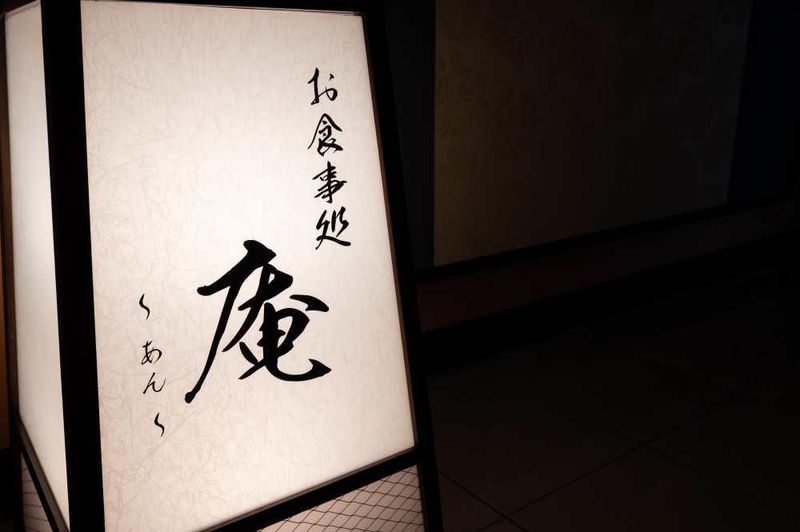 お食事処
庵
〜あん〜